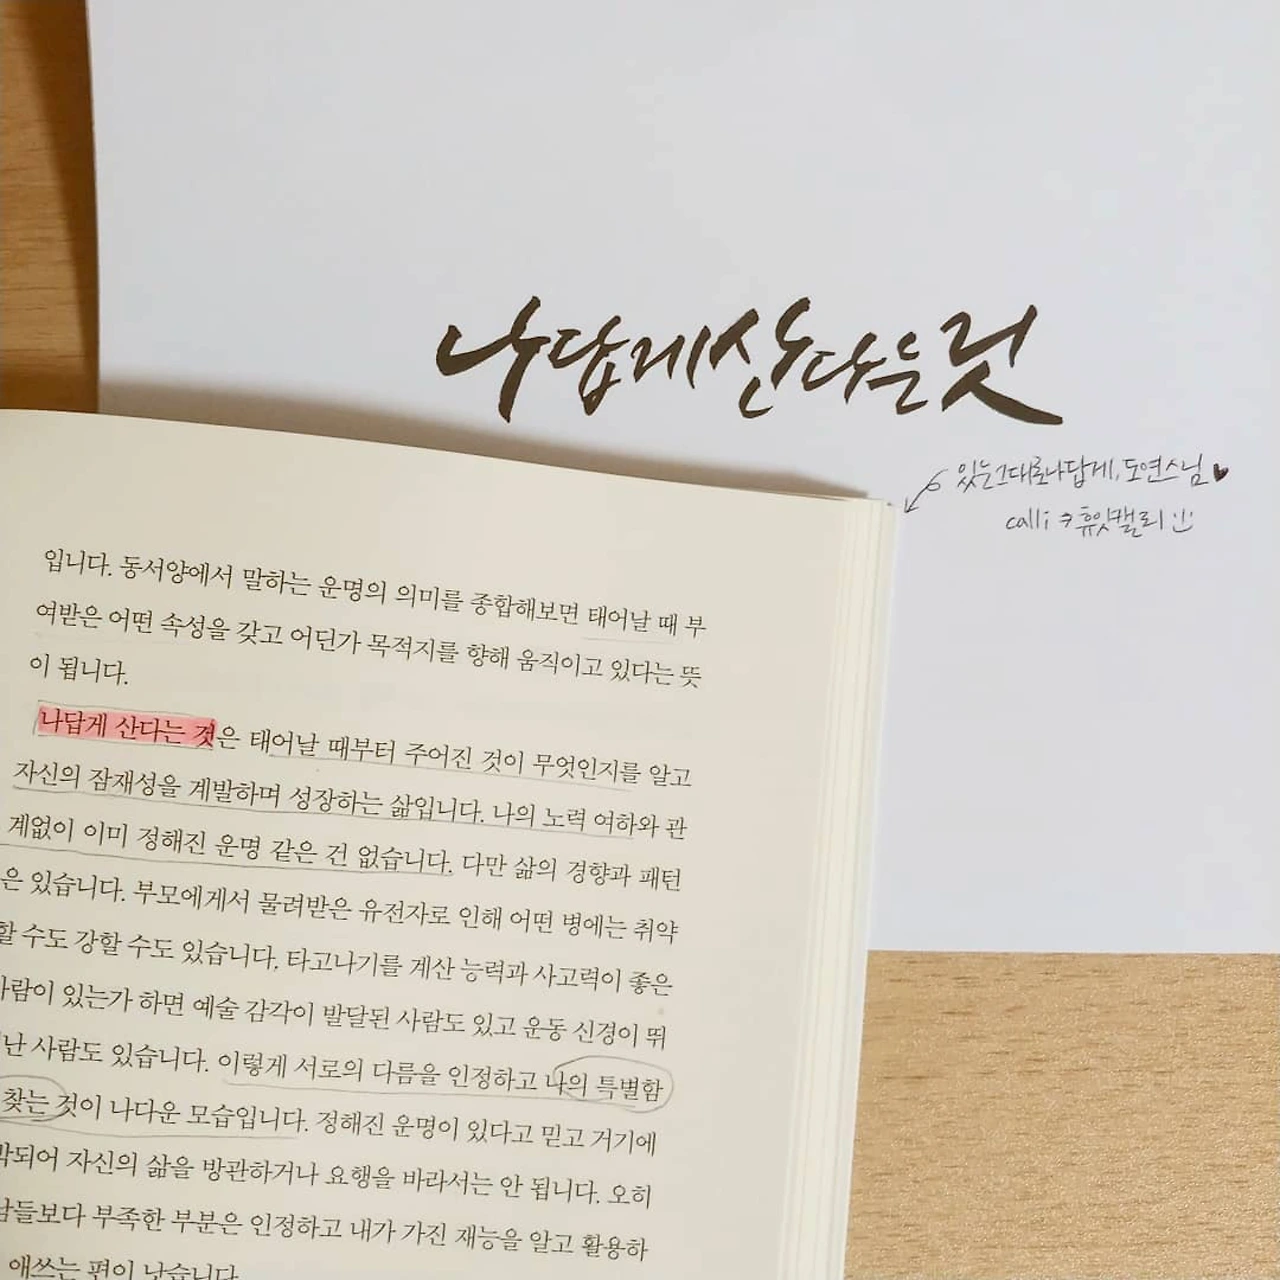 나답게 산다는 것
있는 그대로 나답게, 도연스님♥
calli 휴잇캘리
입니다. 동서양에서 말하는 운명의 의미를 종합해보면 태어날 때 부
여받은 어떤 속성을 갖고 어딘가 목적지를 향해 움직이고 있다는 뜻
이 됩니다.
나답게 산다는 것은 태어날 때부터 주어진 것이 무엇인지를 알고
자신의 잠재성을 계발하며 성장하는 삶입니다. 나의 노력 여하와 관
계없이 이미 정해진 운명 같은 건 없습니다. 다만 삶의 경향과 패턴
은 있습니다. 부모에게서 물려받은 유전자로 인해 어떤 병에는 취약
할 수도 강할 수도 있습니다. 타고나기를 계산 능력과 사고력이 좋은
사람이 있는가 하면 예술 감각이 발달된 사람도 있고 운동 신경이 뛰
어난 사람도 있습니다. 이렇게 서로의 다름을 인정하고 나의 특별함
찾는 것이 나다운 모습입니다. 정해진 운명이 있다고 믿고 거기에
박되어 자신의 삶을 방관하거나 요행을 바라서는 안 됩니다. 오히
남들보다 부족한 부분은 인정하고 내가 가진 재능을 알고 활용하
애쓰는 편이 낫습니다.